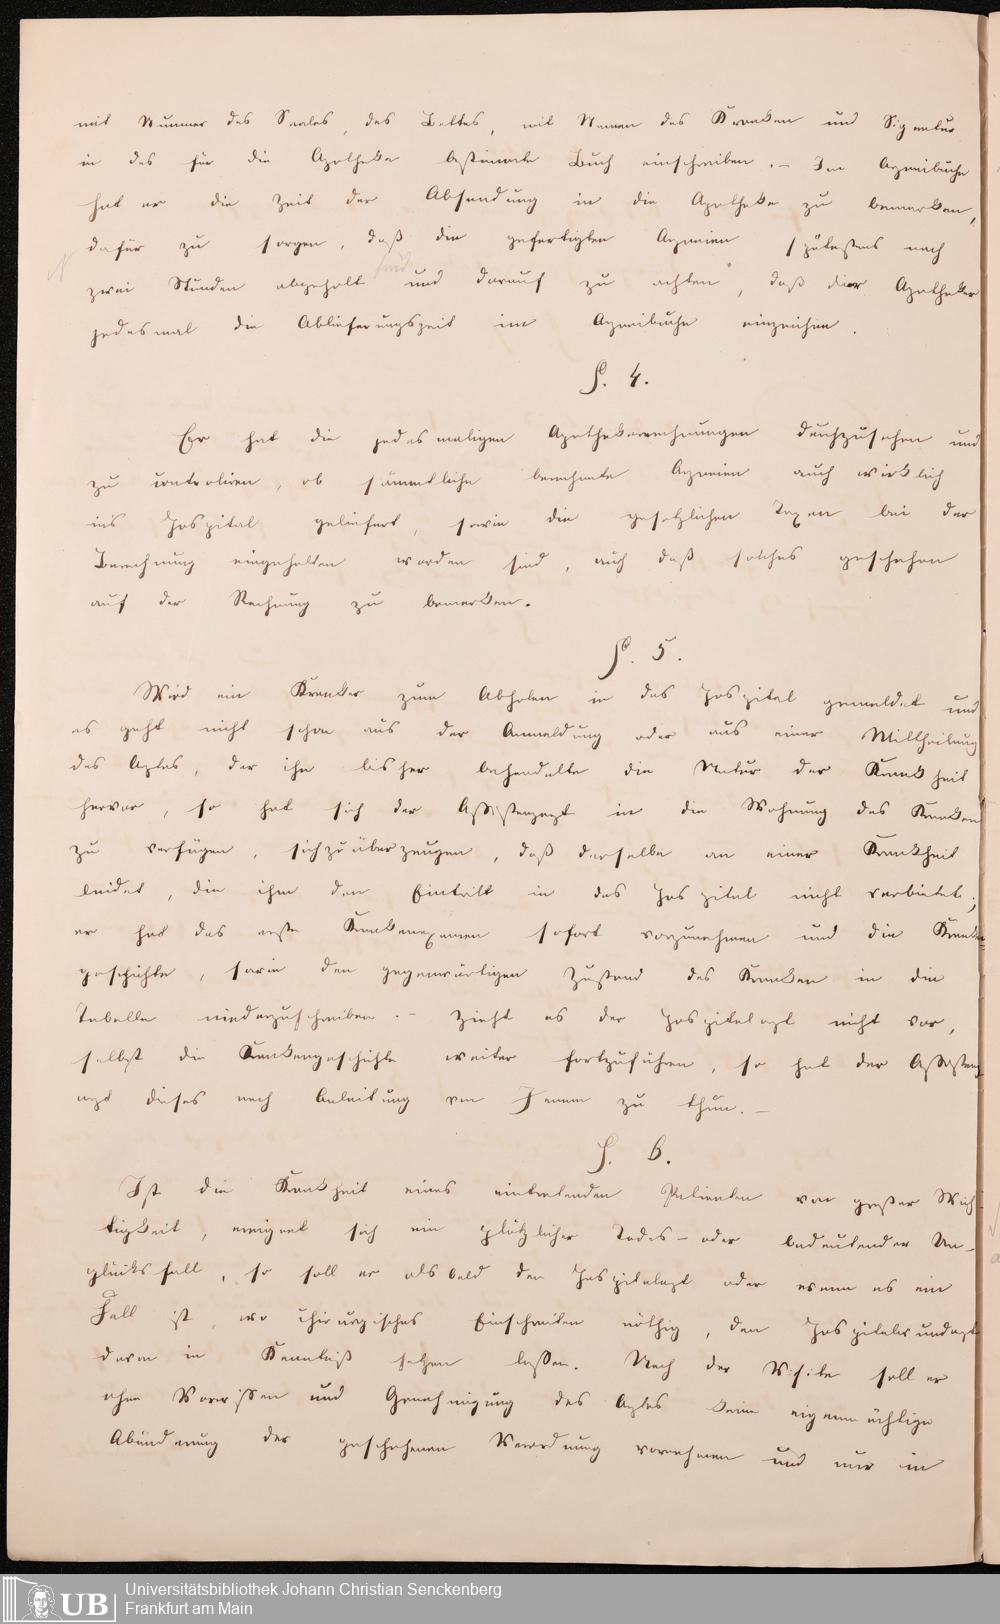 mit Nummer des Saales, des Bettes, mit Namen des Kranken und Signatur
in das für die Apotheke bestimmte Buch einschreiben. – Im Arzneibuche
hat er die Zeit der Absendung in die Apotheke zu bemerken,
dafür zu sorgen, daß die gefertigten Arzneien spätestens nach
zwei Stunden abgeholt sind und darauf zu achten, daß der Apotheker
jedesmal die Ablieferungszeit im Arzneibuche einzeichne.
§. 4.
Er hat die jedesmaligen Apothekerrechnungen durchzusehen und
zu controliren, ob sämmtliche berechnete Arzneien auch wirklich
ins Hospital geliefert, sowie die gesetzlichen Taxen bei der
Berechnung eingehalten worden sind, auch daß solches geschehen
auf der Rechnung zu bemerken.
§. 5.
Wird ein Kranker zum Abholen in das Hospital gemeldet und
es geht nicht schon aus der Anmeldung oder aus einer Mittheilung
des Arztes, der ihn bisher behandelte die Natur der Krankheit
hervor, so hat sich der Assistenzarzt in die Wohnung des Kranken
zu verfügen, sich zu überzeugen, daß derselbe an einer Krankheit
leidet, die ihm den Eintritt in das Hospital nicht verbietet;
er hat das erste Krankenexamen sofort vorzunehmen und die Kranken-
geschichte, sowie den gegenwärtigen Zustand des Kranken in die
Tabelle niederzuschreiben. – Zieht es der Hospitalarzt nicht vor,
selbst die Krankengeschichte weiter fortzuführen, so hat der Assistenz-
arzt dieses nach Anleitung von Jenem zu thun. –
§. 6.
Ist die Krankheit eines eintretenden Patienten von großer Wich-
tigkeit, ereignet sich ein plötzlicher Todes- oder bedeutender Un-
glücksfall, so soll er alsbald den Hospitalarzt oder wenn es ein
Fall ist, wo chirurgisches Einschreiten nöthig, den Hospitalwundarzt
davon in Kenntniß setzen lassen. Nach der Visite soll er
ohne Vorwissen und Genehmigung des Arztes keine eigenmächtige
Abänderung der geschehenen Verordnung vornehmen und nur im
UB Universitätsbibliothek Johann Christian Senckenberg
Frankfurt am Main